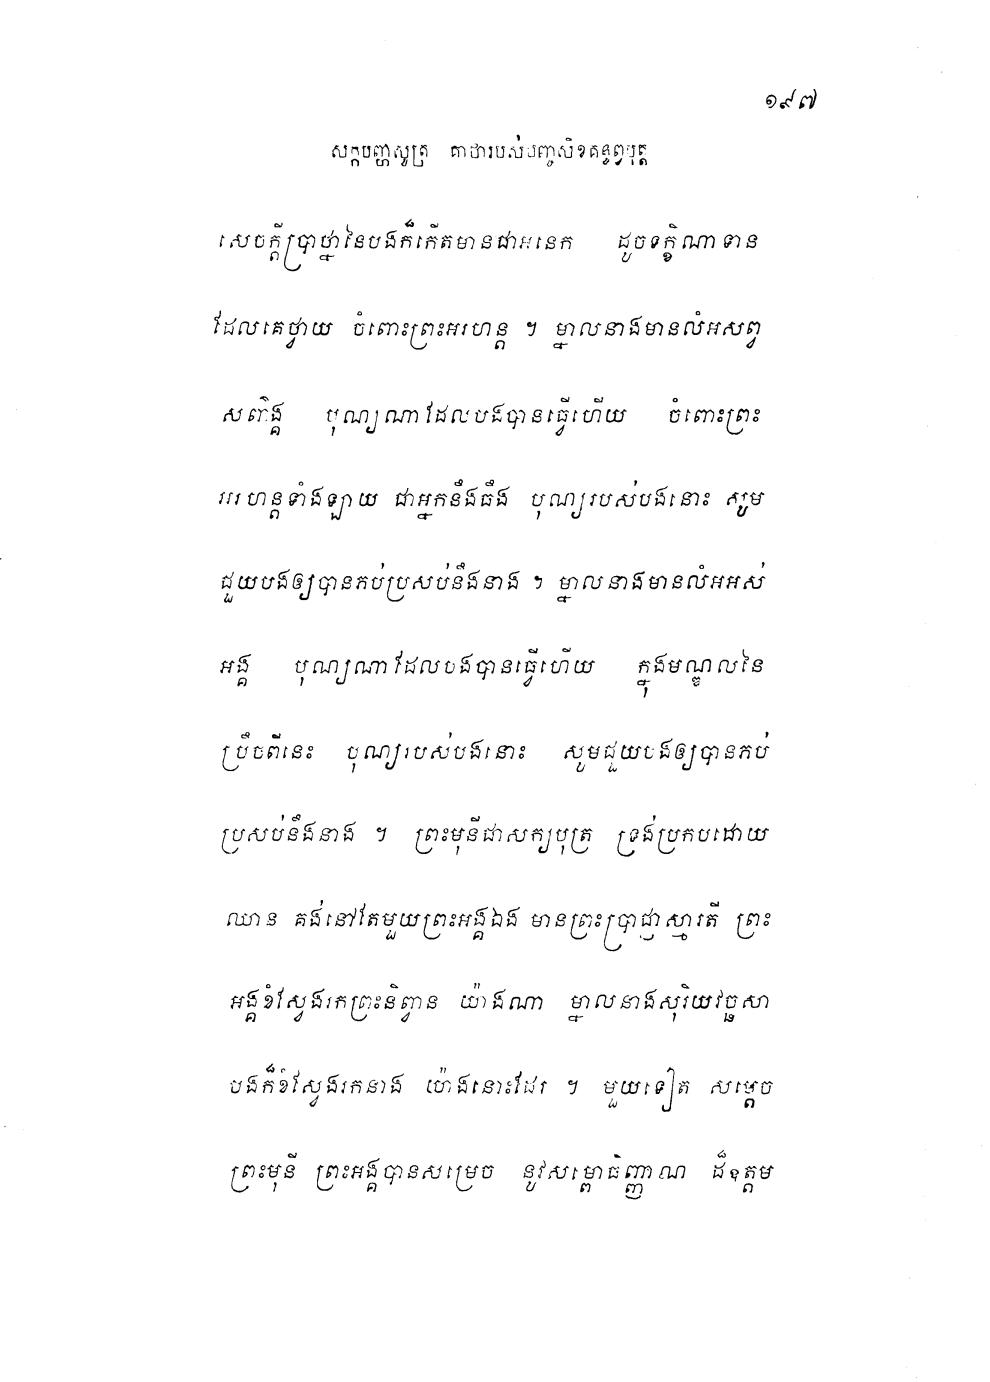 ១៩៧
សក្កបញ្ហសូត្រ គាថារបស់បញ្ចសិខគន្ធព្វបុត្ត
សេចក្តីប្រាថ្នានៃបងក៏កើតមានជាអនេក ដូចទក្ខិណាទាន
ដែលគេថ្វាយ ចំពោះព្រះអរហន្ត ។ ម្នាលនាងមានលំអសព្វ
សព៌ាង្គ បុណ្យណាដែលបងបានធ្វើហើយ ចំពោះព្រះ
អរហន្តទាំងឡាយ ជាអ្នកនឹងធឹង បុណ្យរបស់បងនោះ សូម
ជួយបងឲ្យបានភប់ប្រសប់នឹងនាង ។ ម្នាលនាងមានលំអអស់
អង្គ បុណ្យណាដែលបងបានធ្វើហើយ ក្នុងមណ្ឌលនៃ
ប្រឹថពីនេះ បុណ្យរបស់បងនោះ សូមជួយបងឲ្យបានភប់
ប្រសប់នឹងនាង ។ ព្រះមុនីជាសក្យបុត្រ ទ្រង់ប្រកបដោយ
ឈាន គង់នៅតែមួយព្រះអង្គឯង មានព្រះប្រាជ្ញាស្មារតី ព្រះ
អង្គខំស្វែងរកព្រះនិព្វាន យ៉ាងណា ម្នាលនាងសុរិយវច្ឆសា
បងក៏ខំស្វែងរកនាង យ៉ាងនោះដែរ ។ មួយទៀត សម្តេច
ព្រះមុនី ព្រះអង្គបានសម្រេច នូវសម្ពោធិញ្ញាណ ដ៏ឧត្តម